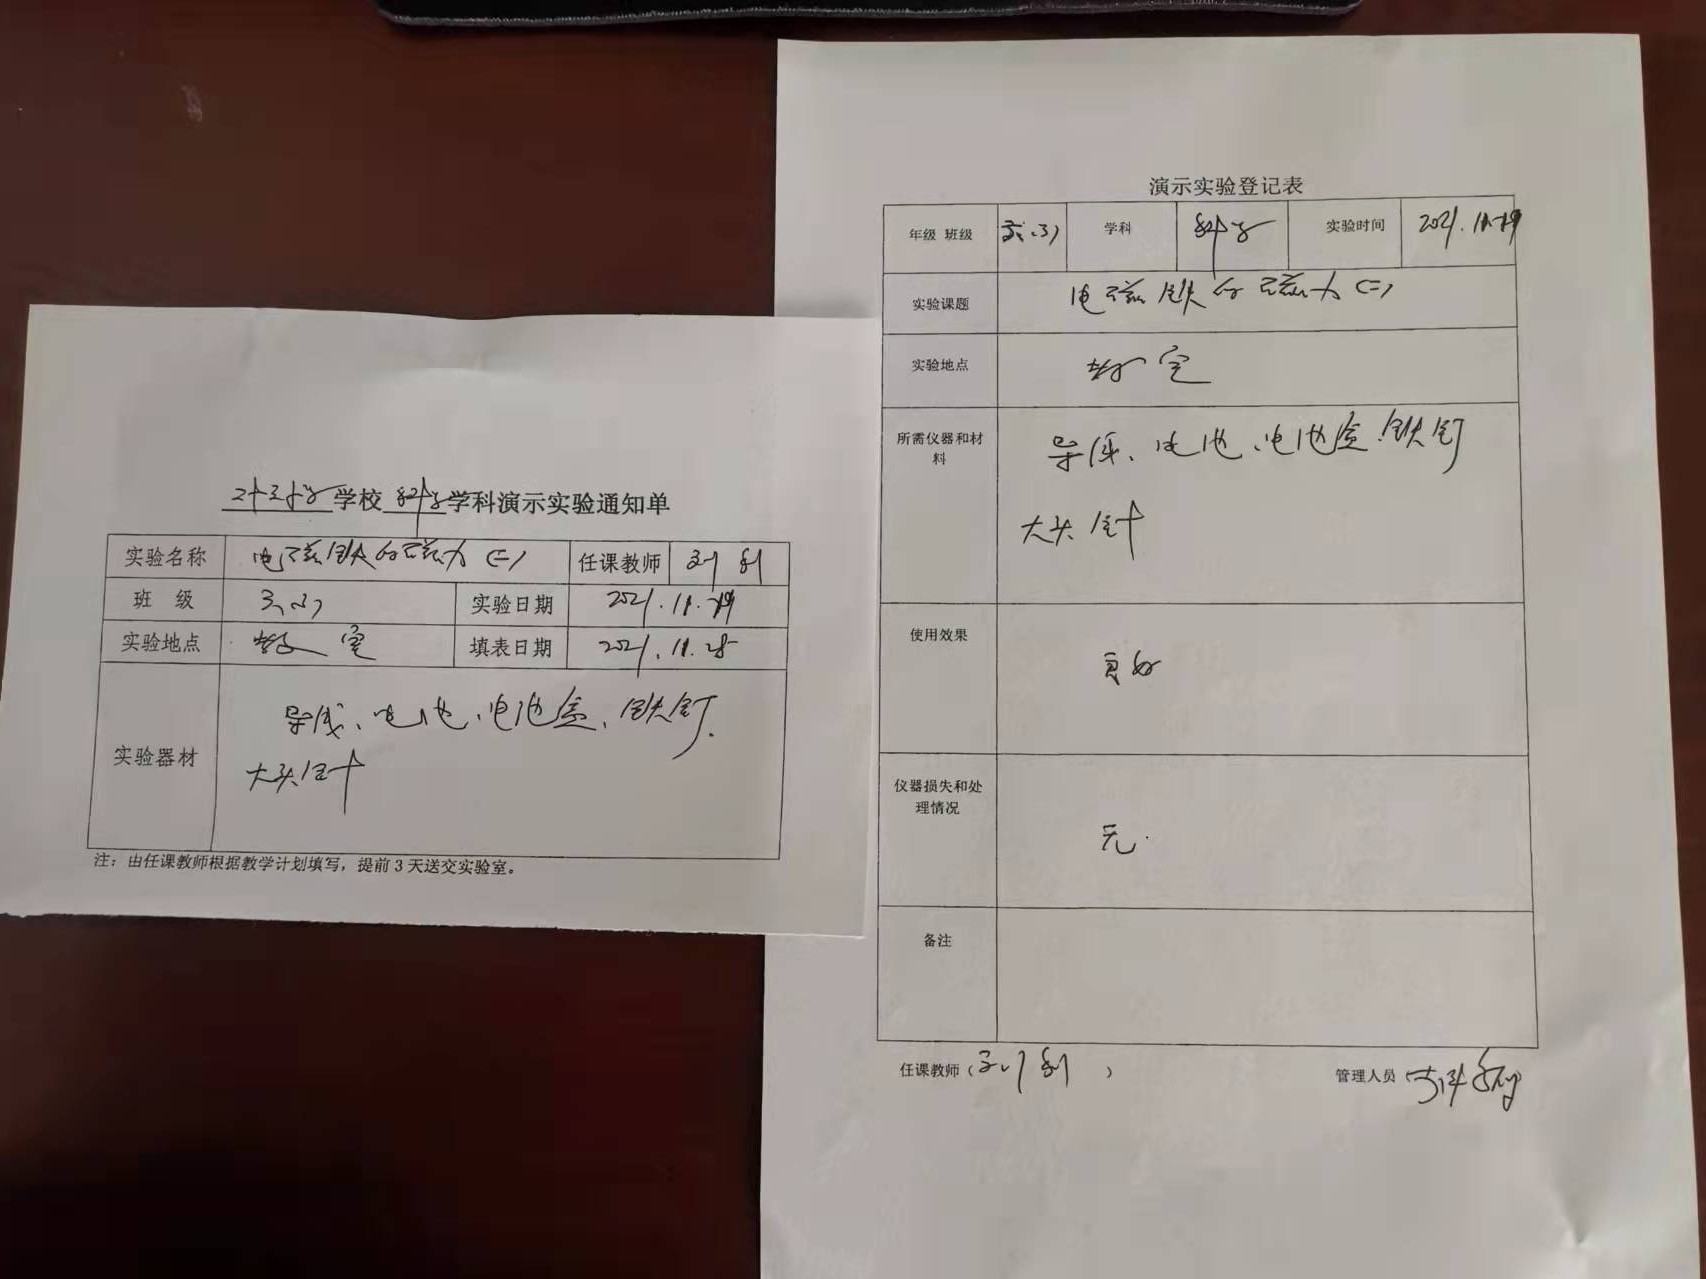 学校 科学 学科演示实验通知单
实验名称 电磁铁的磁力(二) 任课教师 刘
班 级 六(3) 实验日期 2021.11.29
实验地点 教室 填表日期 2021.11.25
实验器材 导线、电池、电池盒、铁钉、
大头针
注：由任课教师根据教学计划填写，提前3天送交实验室。
演示实验登记表
年级 班级 六(3) 学科 科学 实验时间 2021.11.29
实验课题 电磁铁的磁力(二)
实验地点 教室
所需仪器和材料 导线、电池、电池盒、铁钉
大头针
使用效果 良好
仪器损失和处理情况 无.
备注
任课教师（刘 ） 管理人员